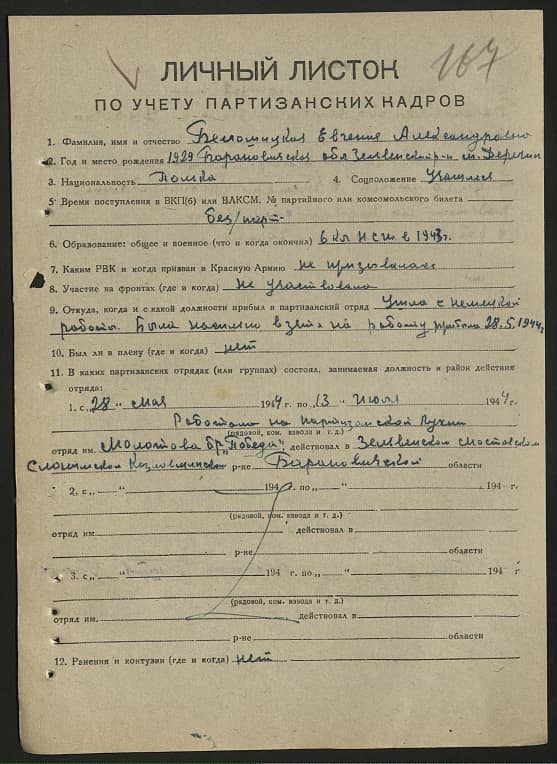 167
ЛИЧНЫЙ ЛИСТОК
ПО УЧЕТУ ПАРТИЗАНСКИХ КАДРОВ
1. Фамилия, имя и отчество Евгения Александровна
2. Год и место рождения 1929 Барановичская обл Зельвенский р-н м. Деречин
3. Национальность Полька 4. Соцположение Учащаяся
5. Время поступления в ВКП(б) или ВЛКСМ, № партийного или комсомольского билета
без/парт
6. Образование: общее и военное (что и когда окончил) 6 кл НСШ в 1943г.
7. Каким РВК и когда призван в Красную Армию не призывалась
8. Участие на фронтах (где и когда) не участвовала
9. Откуда, когда и с какой должности прибыл в партизанский отряд Ушла с немецкой
работы. Была насильно взята на работу 28.5.1944г.
10. Был ли в плену (где и когда) нет
11. В каких партизанских отрядах (или группах) состоял, занимаемая должность и район действия
отряда:
1. с „28“ мая 1944 г. по „13“ июля 1944 г.
Работала на партизанской кухни
(рядовой, ком. взвода и т. д.)
отряд им. Молотова бр. „Победа“, действовал в Зельвенском Мостовском
Слонимском Козловщинском р-не Барановичской области
2. с „ “ 194 г. по „ “ 194 г.
(рядовой, ком. взвода и т. д.)
отряд им. действовал в
р-не области
3. с „ “ 194 г. по „ “ 194 г.
(рядовой, ком. взвода и т. д.)
отряд им. действовал в
р-не области
12. Ранения и контузии (где и когда) нет